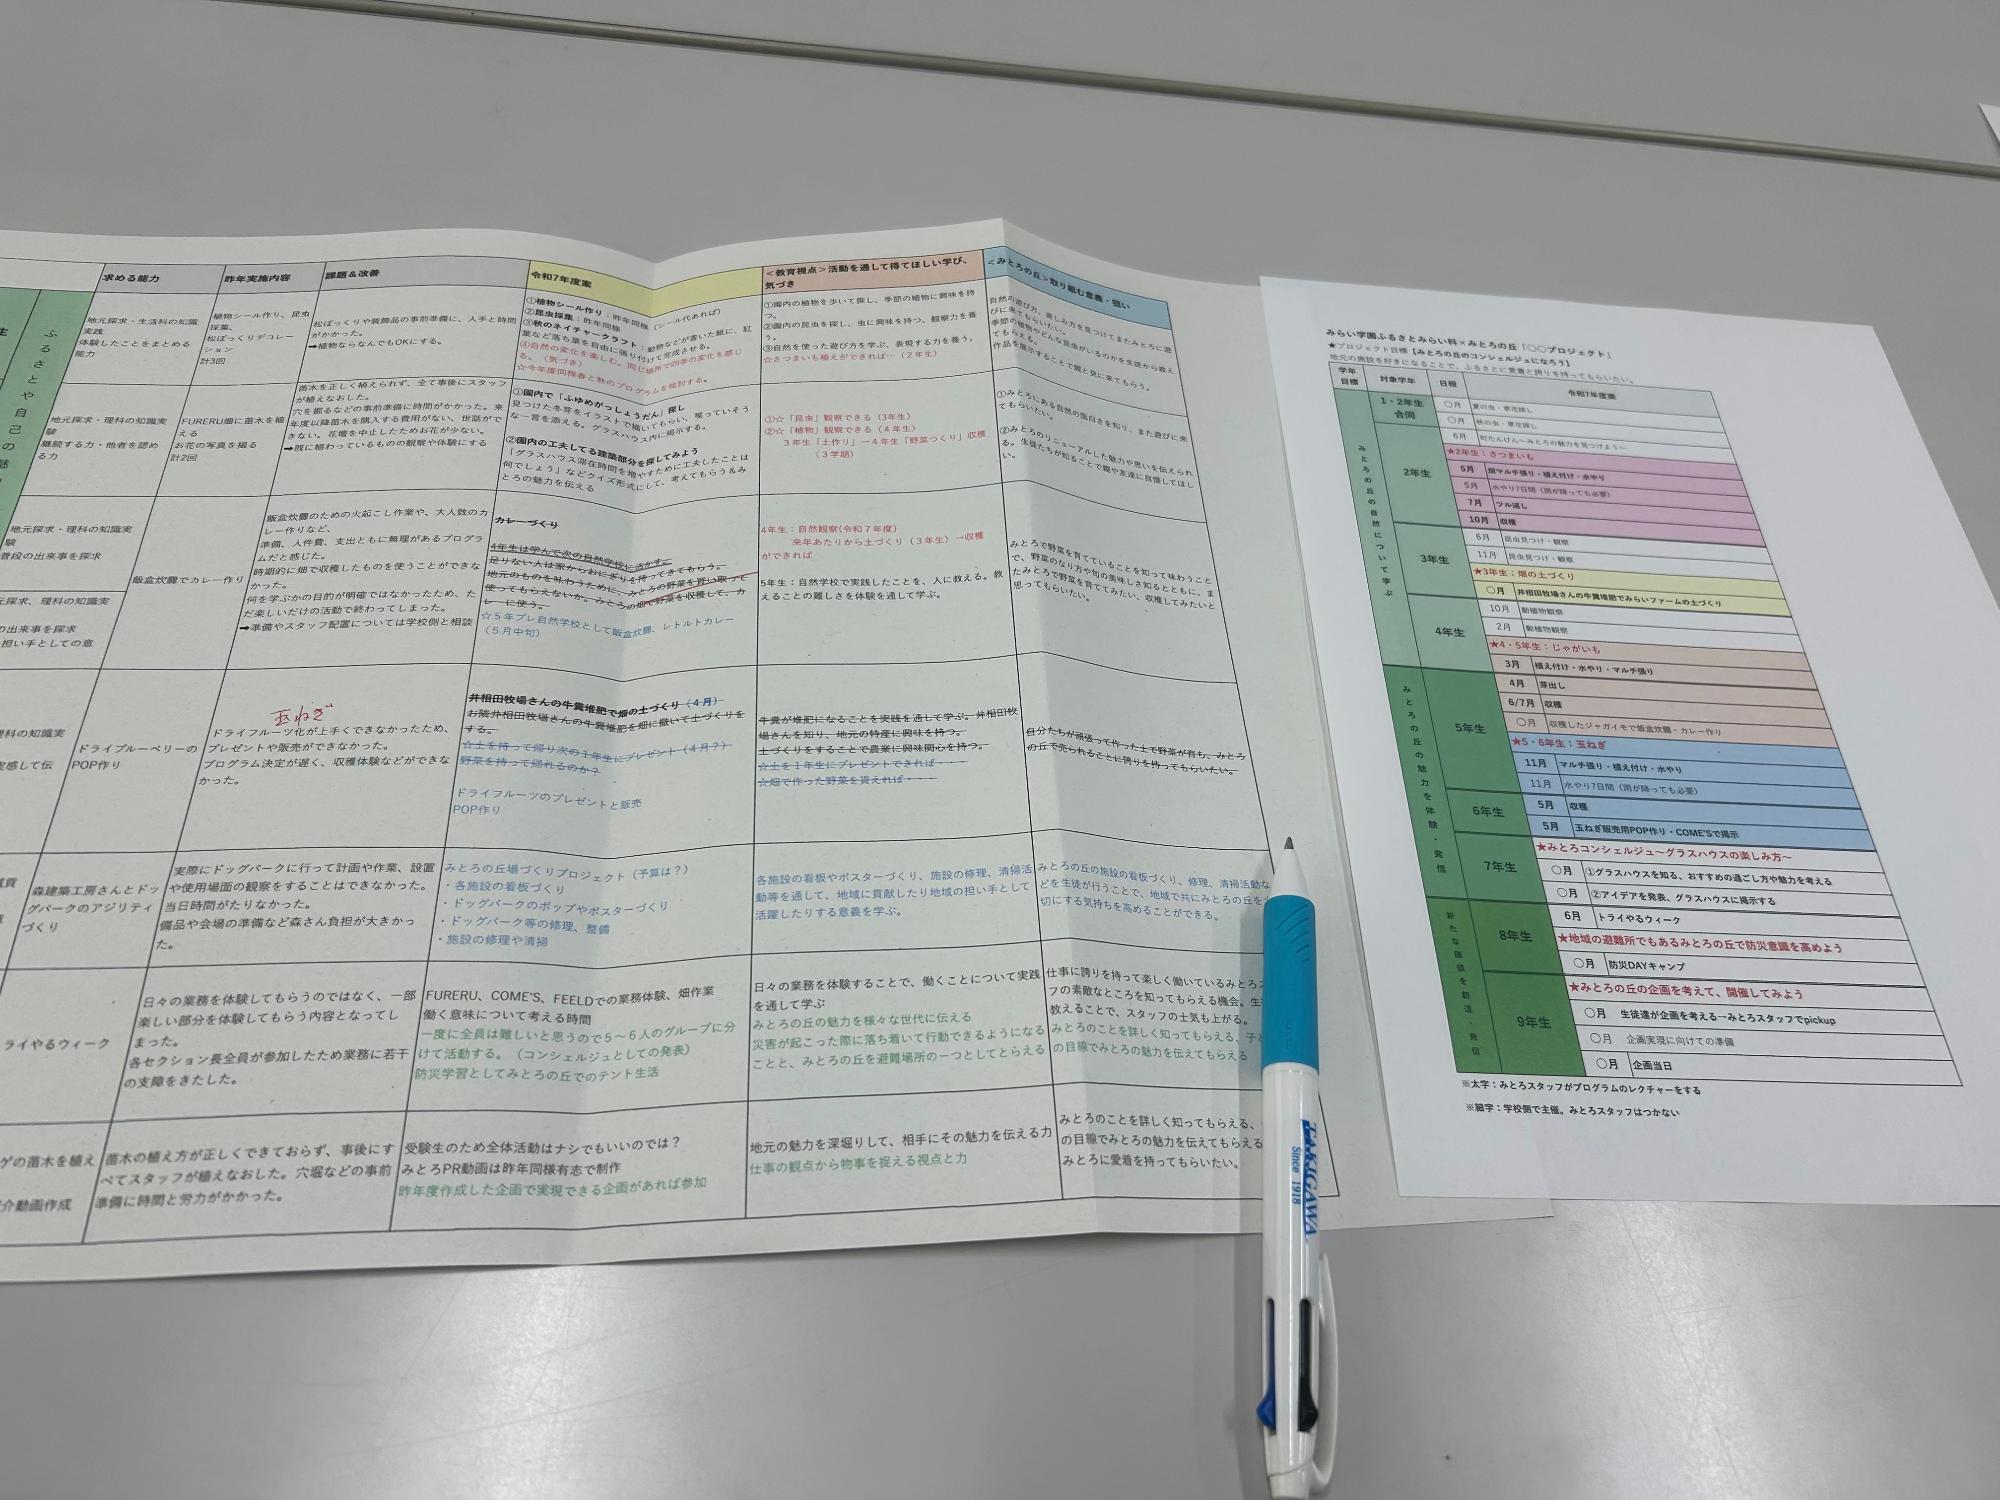 求める能力
昨年実施内容
課題＆改善
令和7年度案
＜教育視点＞活動を通して得てほしい学び、
気づき
＜みとろの丘＞取り組む意義・狙い
ふるさとや自己の魅
地元探求・生活科の知識
実践
体験したことをまとめる
能力
植物シール作り、昆虫
採集、
松ぼっくりデコレー
ション
計3回
松ぼっくりや装飾品の事前準備に、人手と時間
がかかった。
➡植物ならなんでもOKにする。
①植物シール作り：昨年同様（シール代あれば）
②昆虫採集：昨年同様
③秋のネイチャークラフト：動物などが書いた紙に、紅
葉など落ち葉を自由に張り付けて完成させる。
④自然の変化を楽しむ。同じ場所で四季の変化を感じ
る。（気づき）
☆今年度同様春と秋のプログラムを検討する。
①園内の植物を歩いて探し、季節の植物に興味を持
つ。
②園内の昆虫を探し、虫に興味を持つ、観察力を養
う。
③自然を使った遊び方を学ぶ、表現する力を養う。
☆さつまいも植えができれば…（２年生）
自然の遊び方、楽しみ方を見つけてまたみとろに遊
びに来てもらいたい。
季節の植物やどんな昆虫がいるのかを生徒から教え
てもらえる。
作品を展示することで親と見に来てもらう。
地元探求・理科の知識実
験
継続する力・他者を認め
る力
FURERU畑に苗木を植
える
お花の写真を撮る
計2回
苗木を正しく植えられず、全て事後にスタッフ
が植えなおした。
穴を掘るなどの事前準備に時間がかかった。来
年度以降苗木を購入する費用がない、世話がで
きない。花壇を中止したためお花が少ない。
➡既に植わっているものの観察や体験にする
①園内で「ふゆめがっしょうだん」探し
見つけた冬芽をイラストで描いてもらい、喋っていそう
な一言を添える。グラスハウス内に掲示する。
②園内の工夫してる建築部分を探してみよう
「グラスハウス滞在時間を増やすために工夫したことは
何でしょう」などクイズ形式にして、考えてもらう＆み
とろの魅力を伝える
①☆「昆虫」観察できる（3年生）
②☆「植物」観察できる（４年生）
３年生「土作り」→４年生「野菜つくり」収穫
（３学期）
①みとろにある自然の面白さを知り、また遊びに来
てもらいたい。
②みとろのリニューアルした魅力や思いを伝えられ
る。生徒たちが知ることで親や友達に自慢してほし
い。
地元探求・理科の知識実
験
普段の出来事を探求
元探求、理科の知識実
の出来事を探求
担い手としての意
飯盒炊爨でカレー作り
飯盒炊爨のための火起こし作業や、大人数のカ
レー作りなど、
準備、人件費、支出ともに無理があるプログラ
ムだと感じた。
時期的に畑で収穫したものを使うことができな
かった。
何を学ぶかの目的が明確ではなかったため、た
だ楽しいだけの活動で終わってしまった。
➡準備やスタッフ配置については学校側と相談
カレーづくり
4年生は学んで次の自然学校に活かす。
足りない人は家からおにぎりを持ってきてもらう。
地元のものを味わうために、みとろの野菜を買い取って
使ってもらえないか。みとろの畑で野菜を収穫して、カ
レーに使う。
☆５年プレ自然学校として飯盒炊爨、レトルトカレー
（５月中旬）
4年生：自然観察(令和７年度)
来年あたりから土づくり（３年生）→収穫
ができれば
5年生：自然学校で実践したことを、人に教える。教
えることの難しさを体験を通して学ぶ。
みとろで野菜を育てていることを知って味わうこと
で、野菜のなり方や旬の美味しさ知るとともに、ま
たみとろで野菜を育ててみたい、収穫してみたいと
思ってもらいたい。
理科の知識実
実感して伝
ドライブルーベリーの
POP作り
玉ねぎ
ドライフルーツ化が上手くできなかったため、
プレゼントや販売ができなかった。
プログラム決定が遅く、収穫体験などができな
かった。
井相田牧場さんの牛糞堆肥で畑の土づくり（４月）
お隣井相田牧場さんの牛糞堆肥を畑に撒いて土づくりを
する。
☆土を持って帰り次の１年生にプレゼント（４月？）
野菜を持って帰れるのか？
ドライフルーツのプレゼントと販売
POP作り
牛糞が堆肥になることを実践を通して学ぶ。井相田牧
場さんを知り、地元の特産に興味を持つ。
土づくりをすることで農業に興味関心を持つ。
☆土を１年生にプレゼントできれば・・・
☆畑で作った野菜を貰えれば・・・
自分たちが頑張って作った土で野菜が育ち、みとろ
の丘で売られることに誇りを持ってもらいたい。
森建築工房さんとドッ
グパークのアジリティ
づくり
実際にドッグパークに行って計画や作業、設置
や使用場面の観察をすることはできなかった。
当日時間がたりなかった。
備品や会場の準備など森さん負担が大きかっ
た。
みとろの丘場づくりプロジェクト（予算は？）
・各施設の看板づくり
・ドッグパークのポップやポスターづくり
・ドッグパーク等の修理、整備
・施設の修理や清掃
各施設の看板やポスターづくり、施設の修理、清掃活
動等を通して、地域に貢献したり地域の担い手として
活躍したりする意義を学ぶ。
みとろの丘の施設の看板づくり、修理、清掃活動な
どを生徒が行うことで、地域で共にみとろの丘を大
切にする気持ちを高めることができる。
ライやるウィーク
日々の業務を体験してもらうのではなく、一部
楽しい部分を体験してもらう内容となってし
まった。
各セクション長全員が参加したため業務に若干
の支障をきたした。
FURERU、COME'S、FEELDでの業務体験、畑作業
働く意味について考える時間
一度に全員は難しいと思うので５～６人のグループに分
けて活動する。（コンシェルジュとしての発表）
防災学習としてみとろの丘でのテント生活
日々の業務を体験することで、働くことについて実践
を通して学ぶ
みとろの丘の魅力を様々な世代に伝える
災害が起こった際に落ち着いて行動できるようになる
ことと、みとろの丘を避難場所の一つとしてとらえる
仕事に誇りを持って楽しく働いているみとろス
フの素敵なところを知ってもらえる機会。生
教えることで、スタッフの士気も上がる。
みとろのことを詳しく知ってもらえる、子
の目線でみとろの魅力を伝えてもらえる
ゲの苗木を植え
介動画作成
苗木の植え方が正しくできておらず、事後にす
べてスタッフが植えなおした。穴堀などの事前
準備に時間と労力がかかった。
受験生のため全体活動はナシでもいいのでは？
みとろPR動画は昨年同様有志で制作
昨年度作成した企画で実現できる企画があれば参加
地元の魅力を深堀りして、相手にその魅力を伝える力
仕事の観点から物事を捉える視点と力
みとろのことを詳しく知ってもらえる、
の目線でみとろの魅力を伝えてもらえる
みとろに愛着を持ってもらいたい。
TAKIGAWA
Since 1918
みらい学園ふるさとみらい科×みとろの丘「〇〇プロジェクト」
★プロジェクト目標【みとろの丘のコンシェルジュになろう】
地元の施設を好きになることで、ふるさとに愛着と誇りを持ってもらいたい。
学年
目標
対象学年
日程
令和7年度案
みとろの丘の自然について学ぶ
1・2年生
合同
〇月 夏の虫・草花探し
〇月 秋の虫・草花探し
2年生
6月 町たんけん～みとろの魅力を見つけよう～
★2年生：さつまいも
5月 畑マルチ張り・植え付け・水やり
5月 水やり7日間（雨が降っても必要）
7月 ツル返し
10月 収穫
3年生
6月 昆虫見つけ・観察
11月 昆虫見つけ・観察
★3年生：畑の土づくり
〇月 井相田牧場さんの牛糞堆肥でみらいファームの土づくり
4年生
10月 動植物観察
2月 動植物観察
★4・5年生：じゃがいも
3月 植え付け・水やり・マルチ張り
みとろの丘の魅力を体験・発信
5年生
4月 芽出し
6/7月 収穫
〇月 収穫したジャガイモで飯盒炊爨・カレー作り
★5・6年生：玉ねぎ
11月 マルチ張り・植え付け・水やり
11月 水やり7日間（雨が降っても必要）
6年生
5月 収穫
5月 玉ねぎ販売用POP作り・COME'Sで掲示
7年生
★みとろコンシェルジュ～グラスハウスの楽しみ方～
〇月 ①グラスハウスを知る、おすすめの過ごし方や魅力を考える
〇月 ②アイデアを発表、グラスハウスに掲示する
新たな価値を創造・発信
8年生
6月 トライやるウィーク
★地域の避難所でもあるみとろの丘で防災意識を高めよう
〇月 防災DAYキャンプ
9年生
★みとろの丘の企画を考えて、開催してみよう
〇月 生徒達が企画を考える→みとろスタッフでpickup
〇月 企画実現に向けての準備
〇月 企画当日
※太字：みとろスタッフがプログラムのレクチャーをする
※細字：学校側で主催。みとろスタッフはつかない